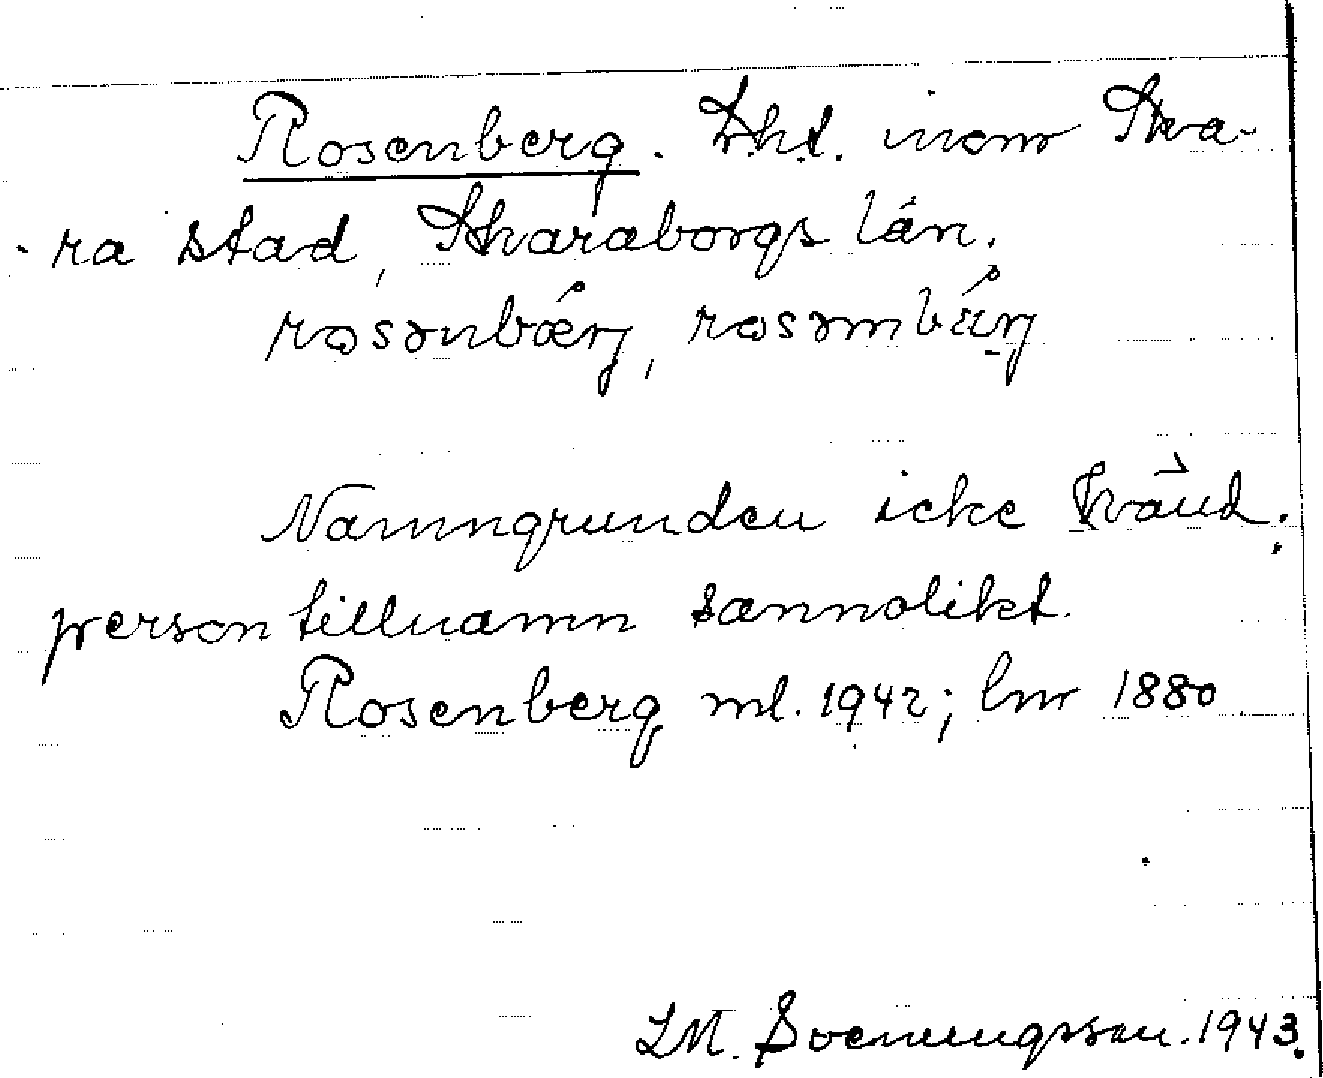 Rosenberg. Lht. inom Ska-
-ra stad, Skaraborgs län.
rosənbærj, rosəmbärj
Namngrunden icke känd;
persontillnamn sannolikt.
Rosenberg ml. 1942; lm 1880
LM. Svenungsson. 1943.